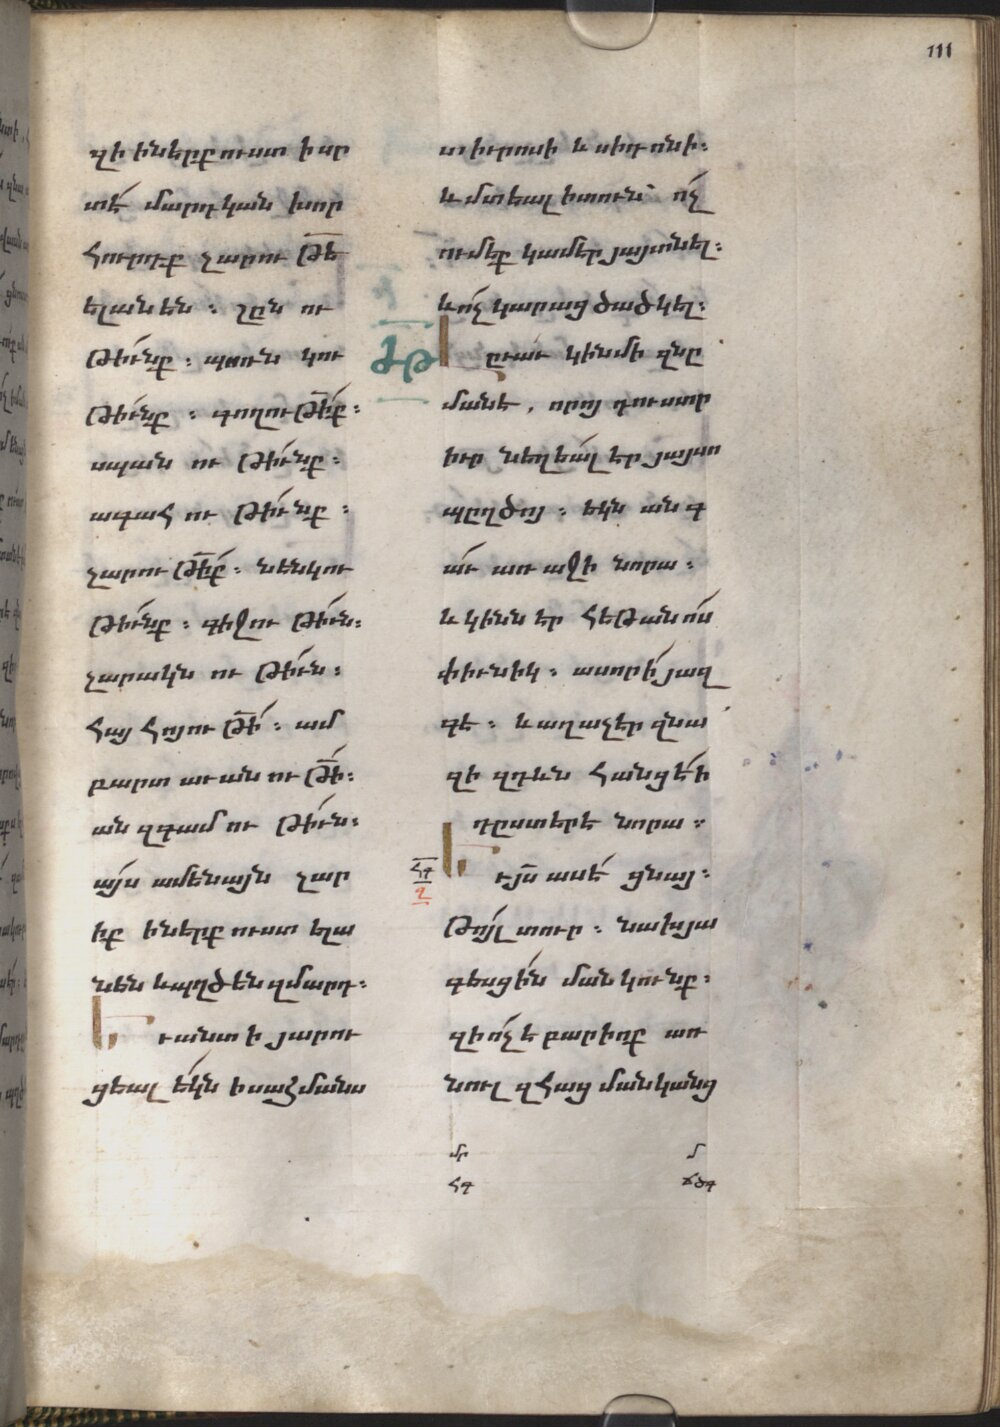 111
զի ի ներքուստ ի սր
տէ մարդկան խոր
հուրդք չարութե
ելանեն ։ շըն ու
թիւնք ։ պոռն կու
թիւնք ։ գողութիք ։
սպան ու թիւնք ։
ագահ ու թիւնք ։
չարութիք ։ նենկու
թիւնք ։ գիջութիւն ։
չարակն ու թիւն ։
հայհոյութի ։ ամ
բարտաւանութի ։
անզգամ ու թիւն ։
այս ամենայն չար
իք ի ներքուստ ելա
նեն և պղծեն զմարդ ։
Եւ անտի յարու
ցեալ եկն ի սահմանս
տիւրոսի և սիդոնի ։
և մտեալ ի տուն՝ ոչ
ումեք կամեր յայտնել ։
և ոչ կարաց ծածկել ։
ԾԹ
Լըւաւ կին մի զնը
մանէ , որոյ դուստր
իւր նեղեալ եր յայսո
պըղծոյ ։ եկն անգ
աւ առաջի նորա ։
և կինն եր հեթանոս
փիւնիկ ։ ասորի յազ
գե ։ և աղաչեր զնա
զի զդևն հանցէ ի
դըստերէ նորա ։
ՀԳ
Ղ
Եւ յս ասէ ցնայ ։
Թոյլ տուր ։ նախ յա
գեսցին մանկունք ։
զի ոչ է բարիոք առ
նուլ զհաց մանկանց
մր
ՀԳ
մ
ՃԾԳ